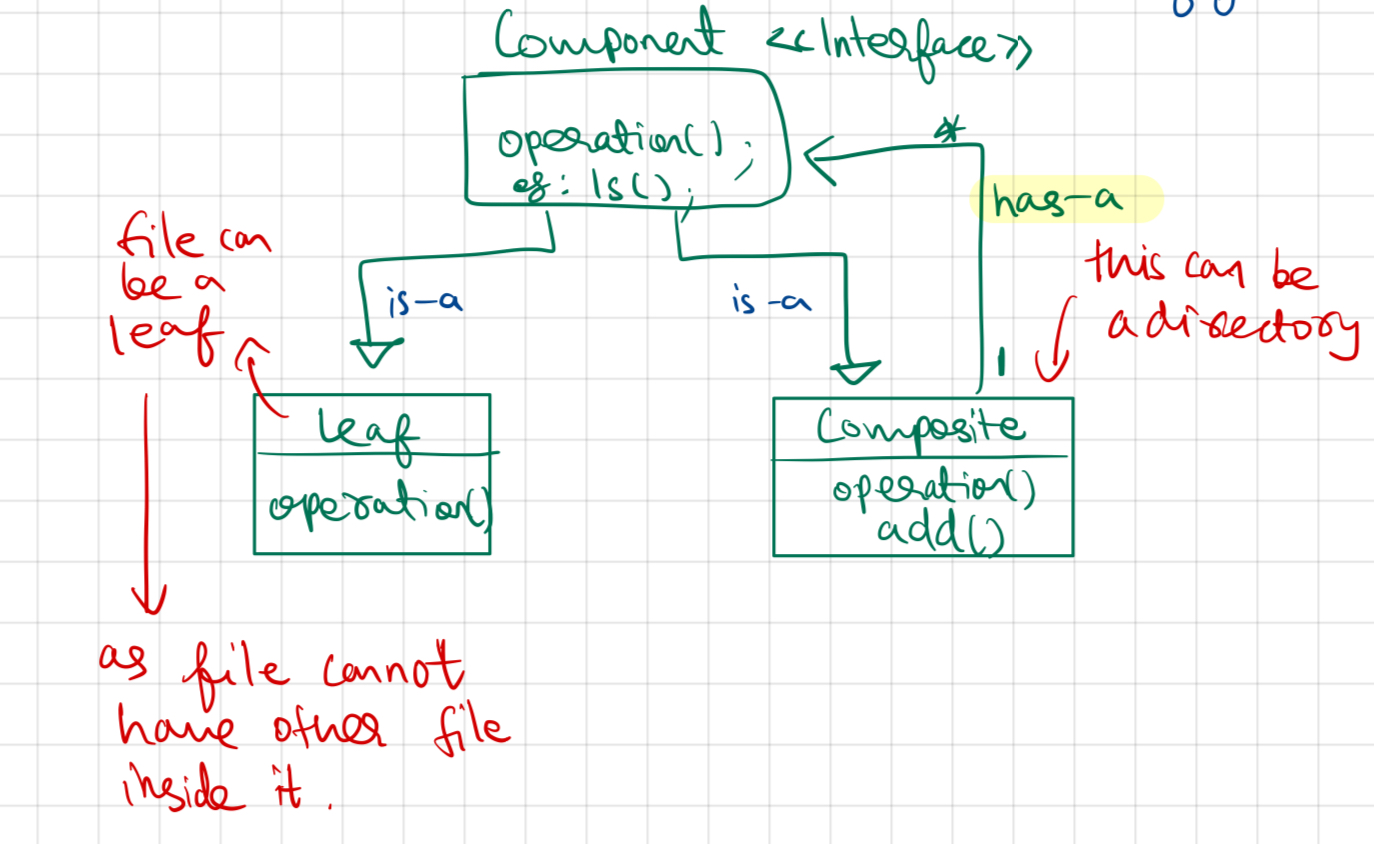 Component <<Interface>>
operation();
eg: ls();
*
has-a
file can
be a
leaf
this can be
a directory
is-a
is-a
1
leaf
operation()
Composite
operation()
add()
as file cannot
have other file
inside it.